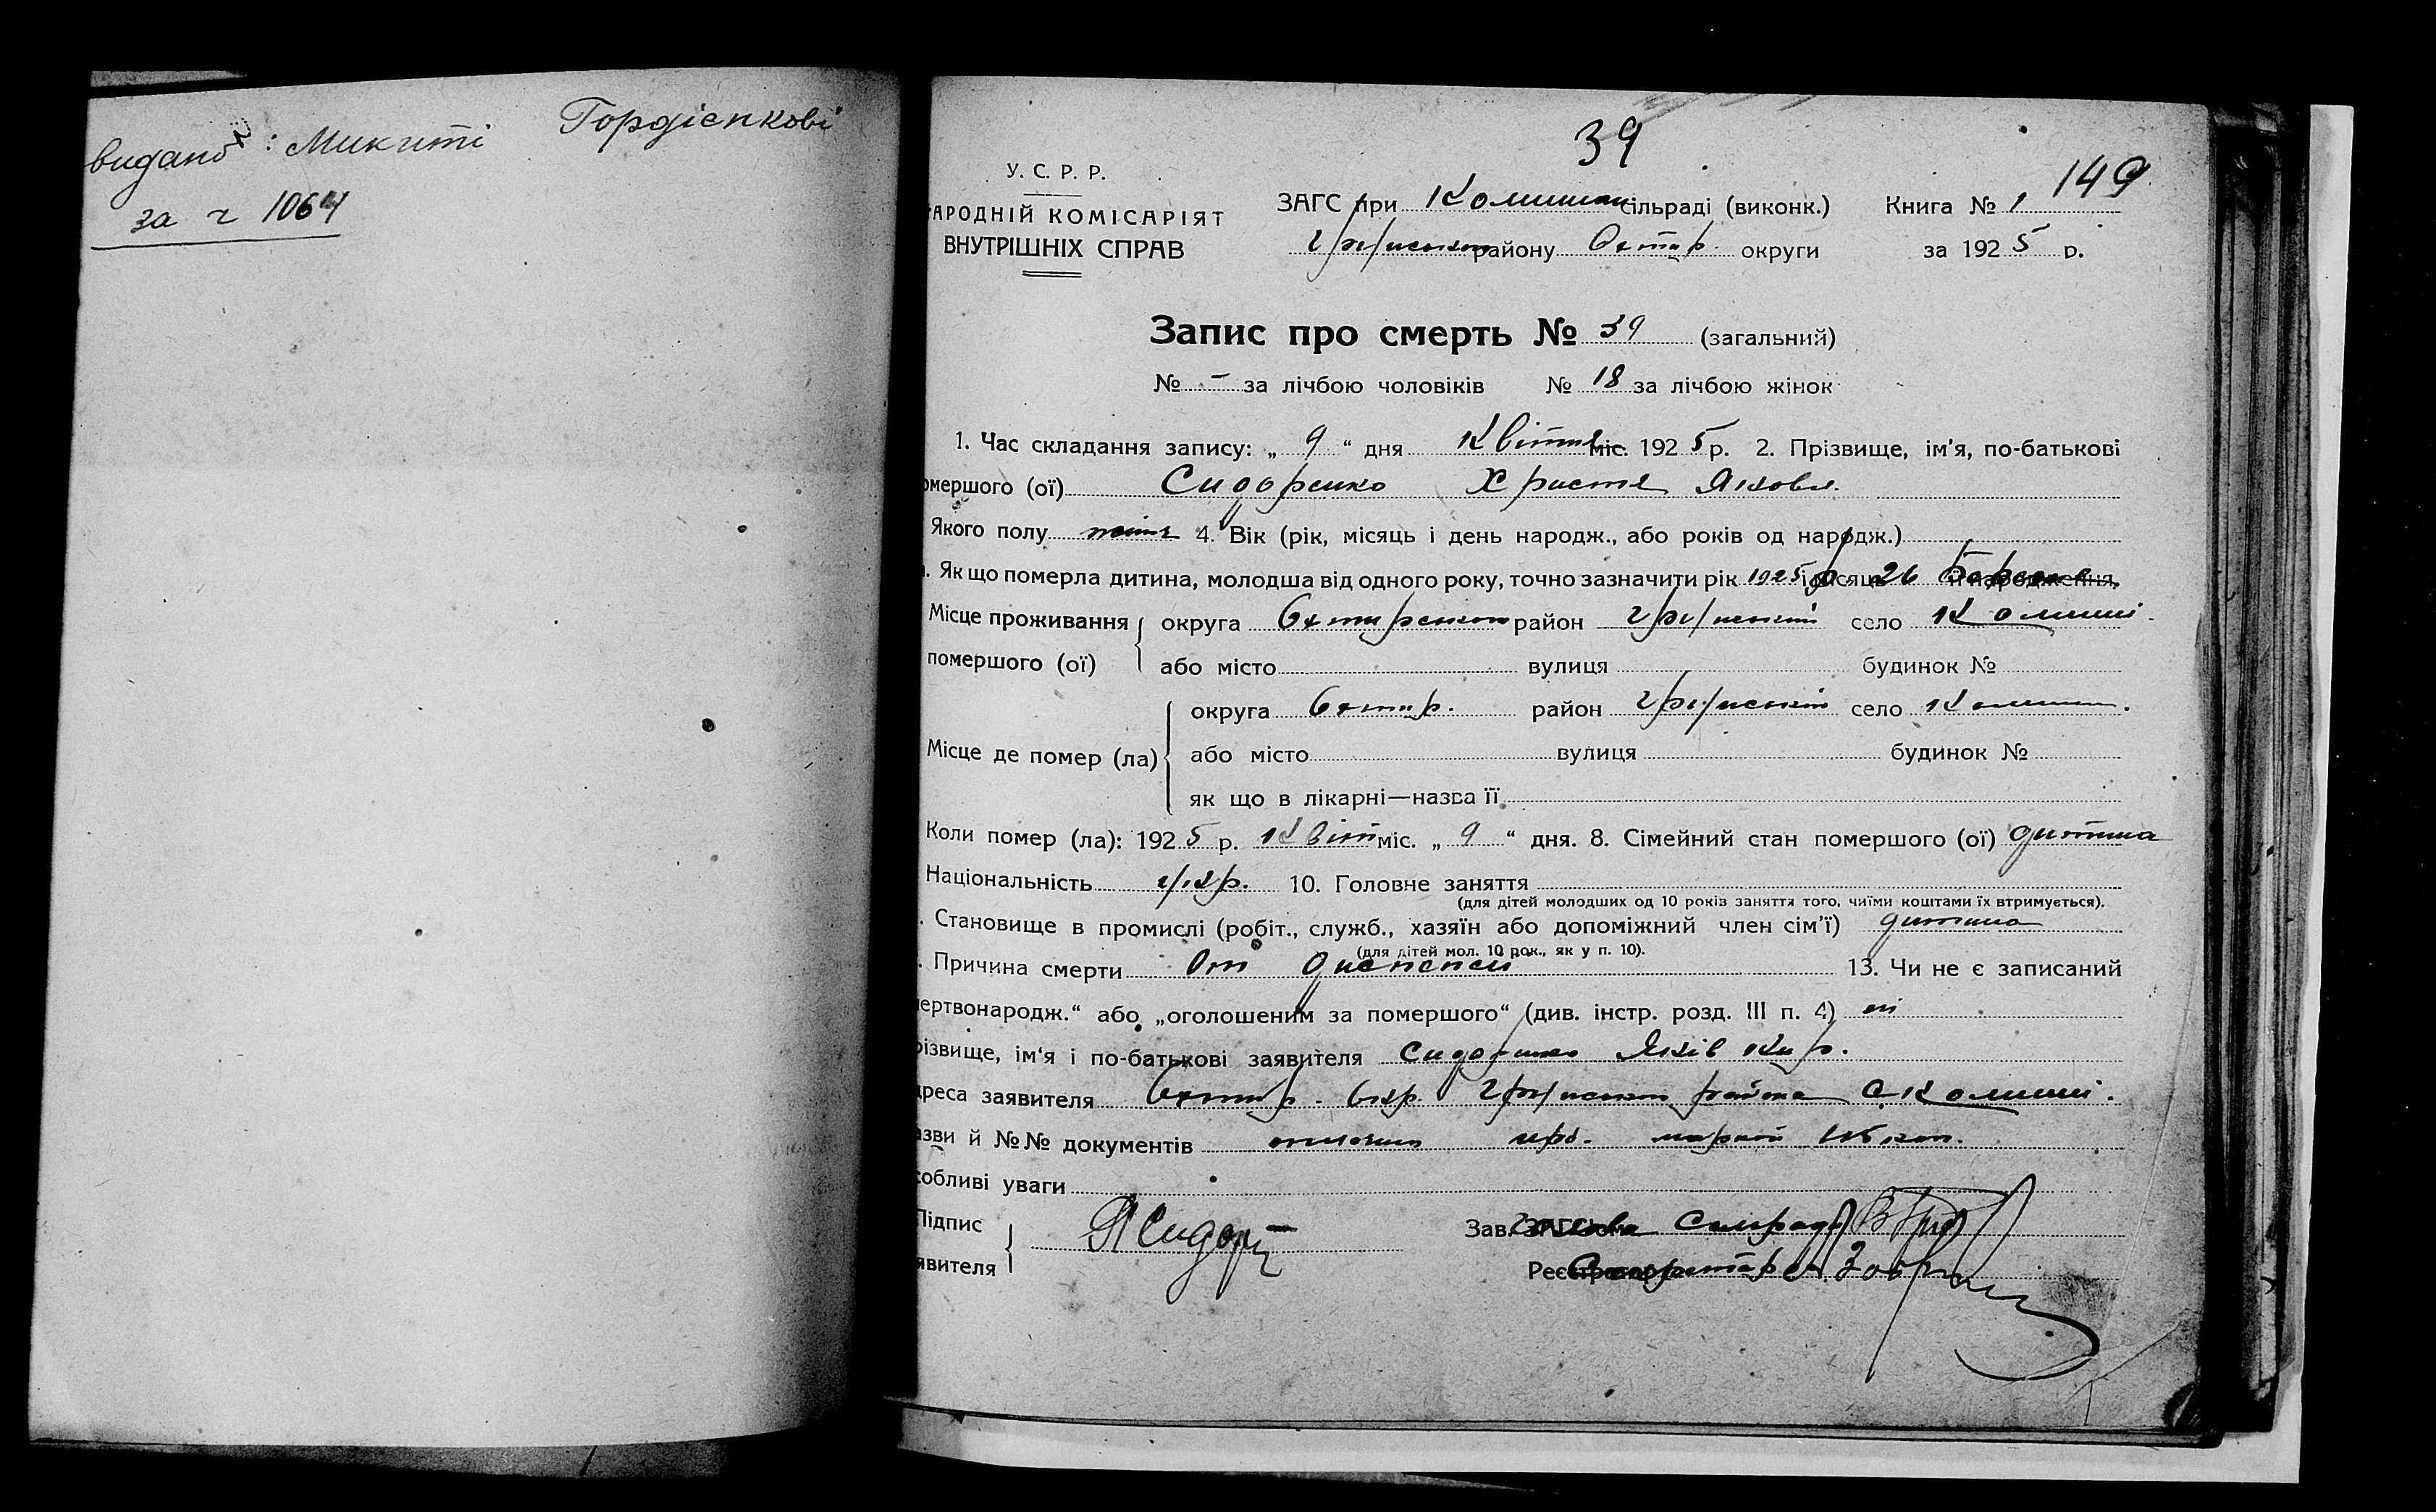 видано : Микиті Гордієнкові
за ч 1064
39
149
У. С. Р. Р.
АРОДНІЙ КОМІСАРІЯТ
ВНУТРІШНІХ СПРАВ
ЗАГС при Комишан сільраді (виконк.) Книга № 1
району Охтир. округи за 192 5 р.
Запис про смерть № 39 (загальний)
№ - за лічбою чоловіків № 18 за лічбою жінок
1. Час складання запису: „ 9 “ дня Квітня міс. 192 5 р. 2. Прізвище, ім'я, по-батькові
омершого (ої) Сидоренко Христя Яковл.
Якого полу жіноч 4. Вік (рік, місяць і день народж., або років од народж.)
. Як що померла дитина, молодша від одного року, точно зазначити рік 1925 місяць 26 Березня її народження,
Місце проживання округа Охтирської район село Комиші
помершого (ої) або місто вулиця будинок №
Місце де помер (ла) округа Охтир. район село Комиші.
або місто вулиця будинок №
як що в лікарні—назва її
Коли помер (ла): 192 5 р. Квіт міс. „ 9 “ дня. 8. Сімейний стан помершого (ої) дитина
Національність укр. 10. Головне заняття
(для дітей молодших од 10 років заняття того, чиїми коштами їх втримується).
. Становище в промислі (робіт., служб., хазяїн або допоміжний член сім'ї) дитина
(для дітей мол. 10 рок., як у п. 10).
. Причина смерти От диспепсии 13. Чи не є записаний
ертвонародж.“ або „оголошеним за помершого“ (див. інстр. розд. III п. 4) ні
різвище, ім'я і по-батькові заявителя Сидоренко Яків Кир.
дреса заявителя Охтир. окр. района с Комиші.
азви й №№ документів
собливі уваги
Підпис
явителя Я Сидор
Зав. ЗАГС'ом Голова Сільради
Реєстратор Секретар